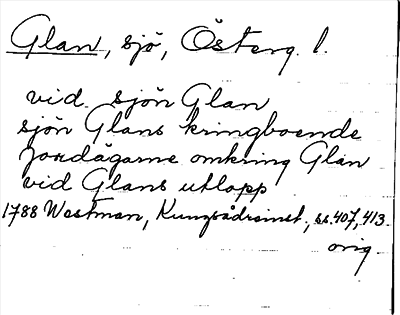 Glan, sjö, Österg. l.
vid sjön Glan
sjön Glans kringboende
jordägarne omkring Glan
vid Glans utlopp
1788 Westman, Kungsådreinst., ss. 407, 413.
orig.